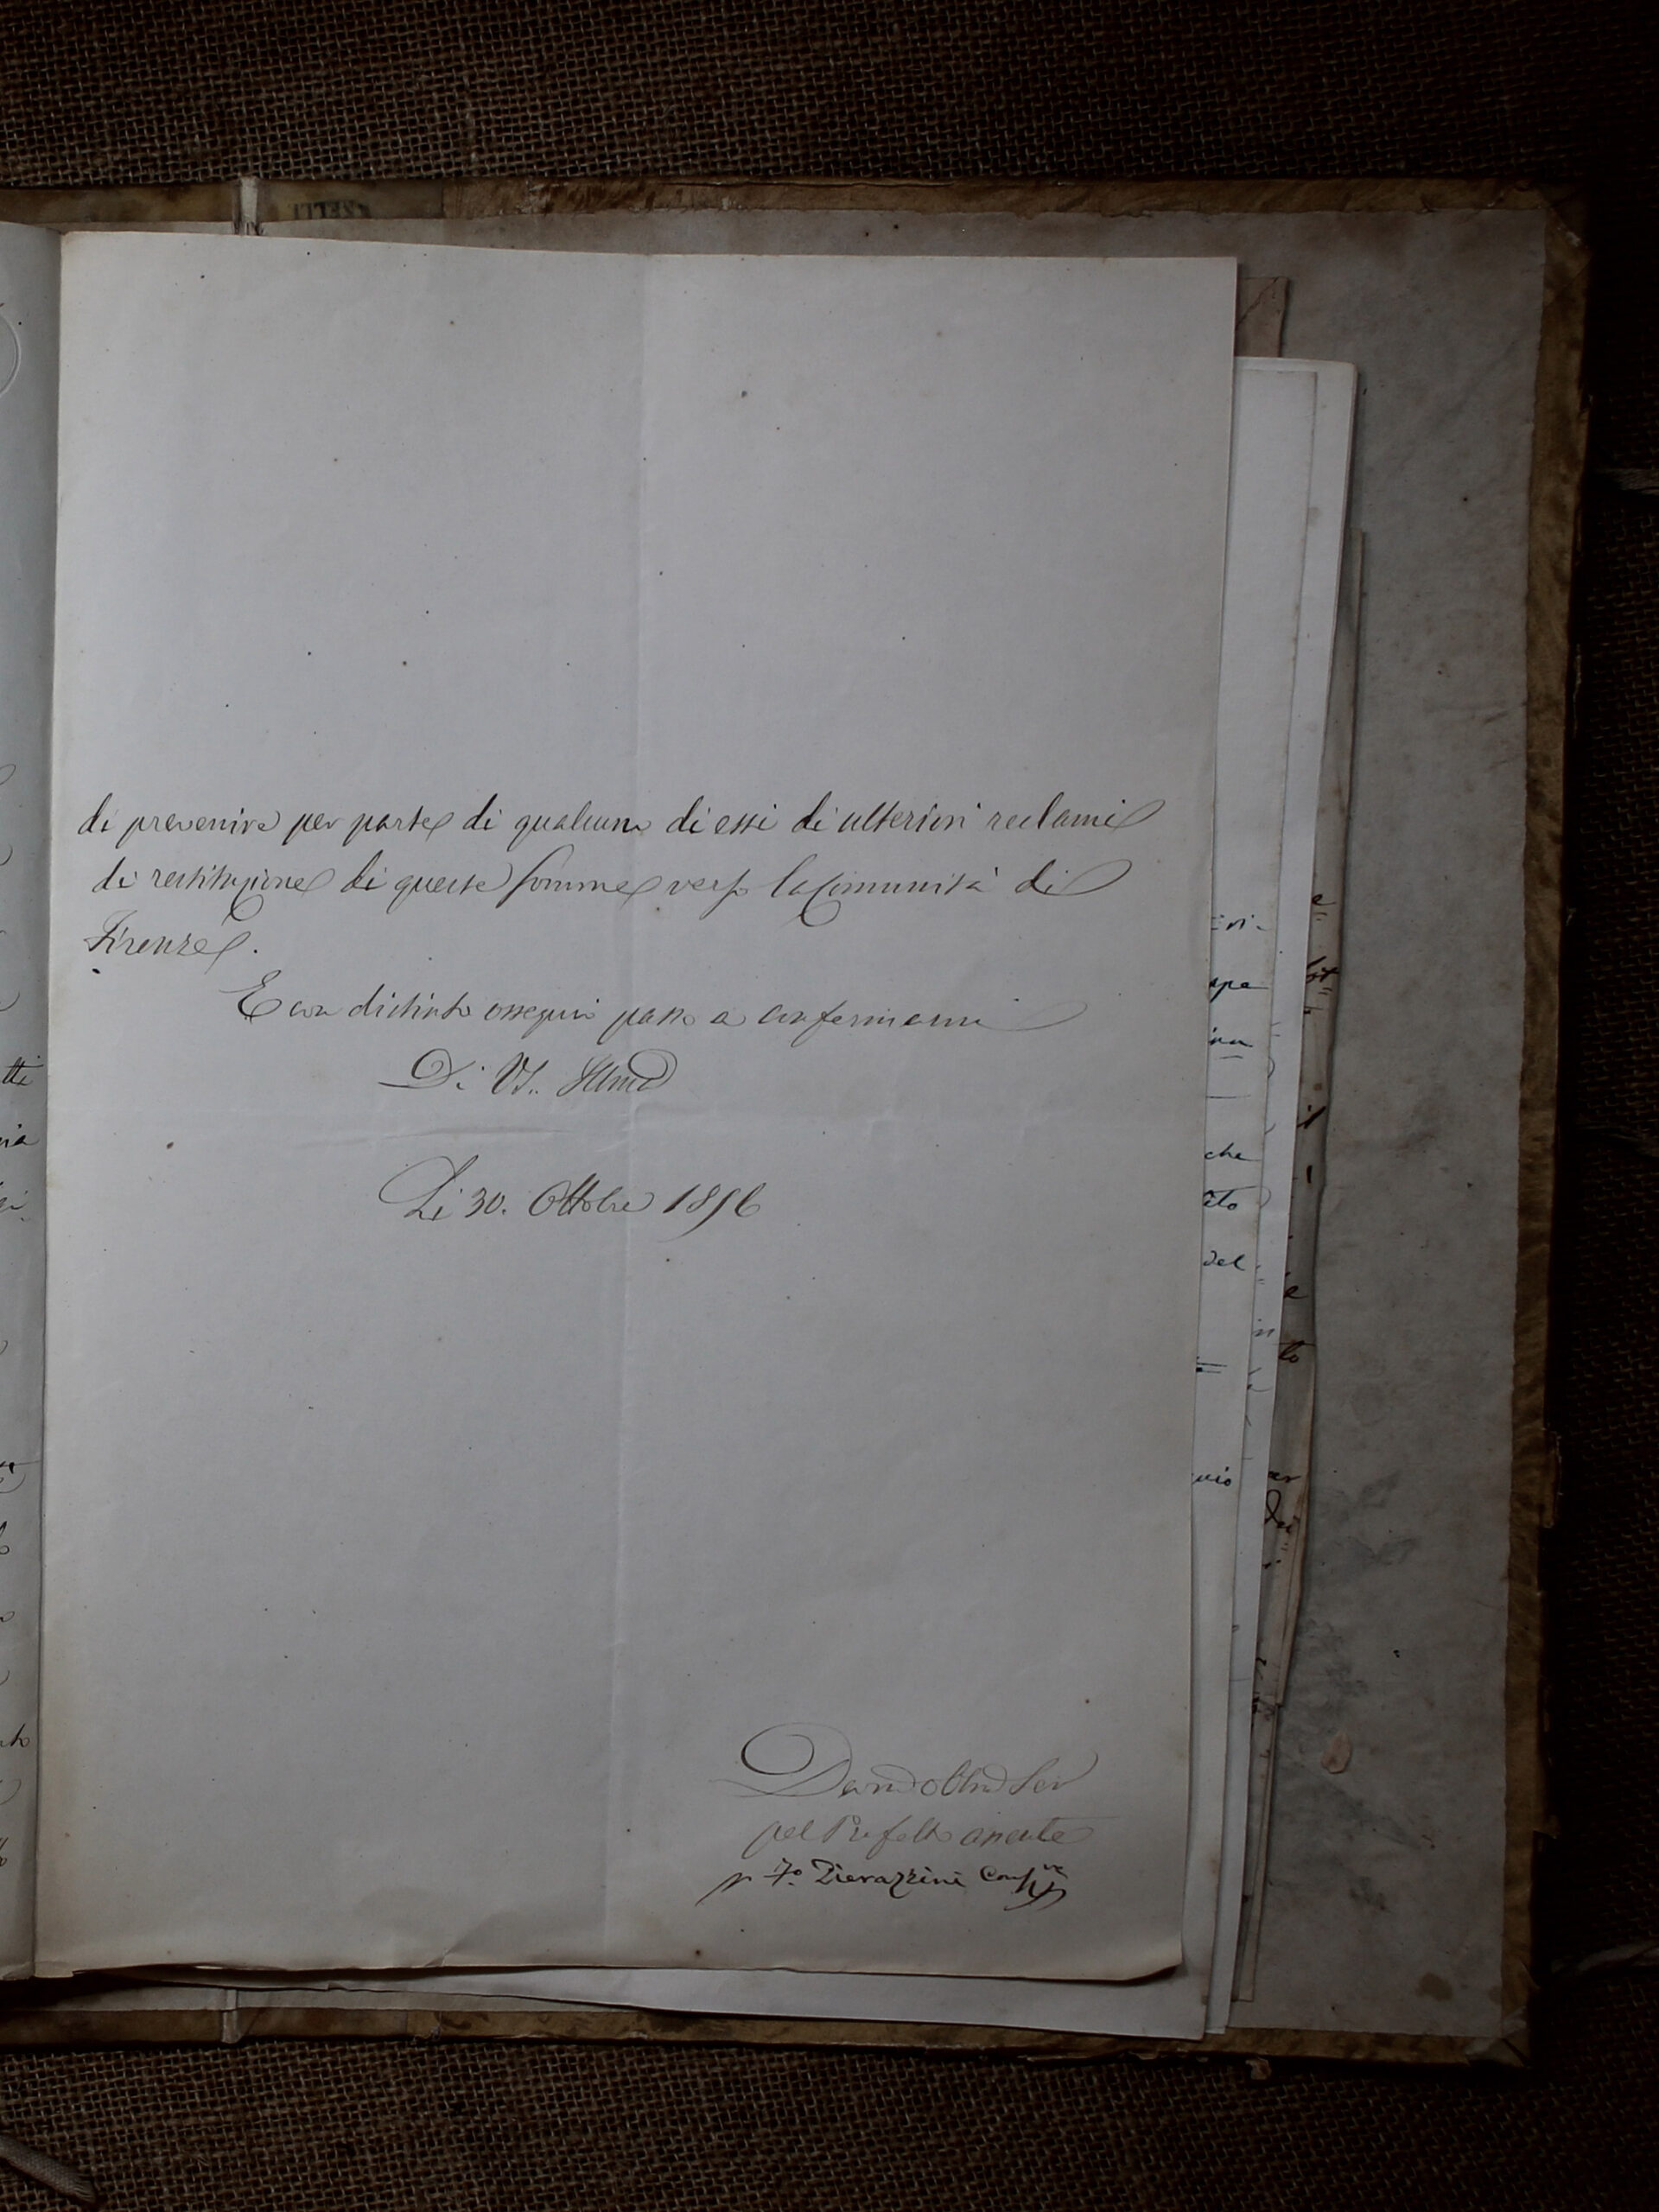 di prevenire per parte di qualcuno di essi di ulteriori reclami
di restituzione di queste somme verso la Comunità di
Firenze.
E con distinto ossequio passo a confermarmi
Di VS. Illma
Li 30. Ottobre 1856
Devmo Obbmo Ser
pel Prefetto assente
F. Pierazzini Consre
tti
che
del